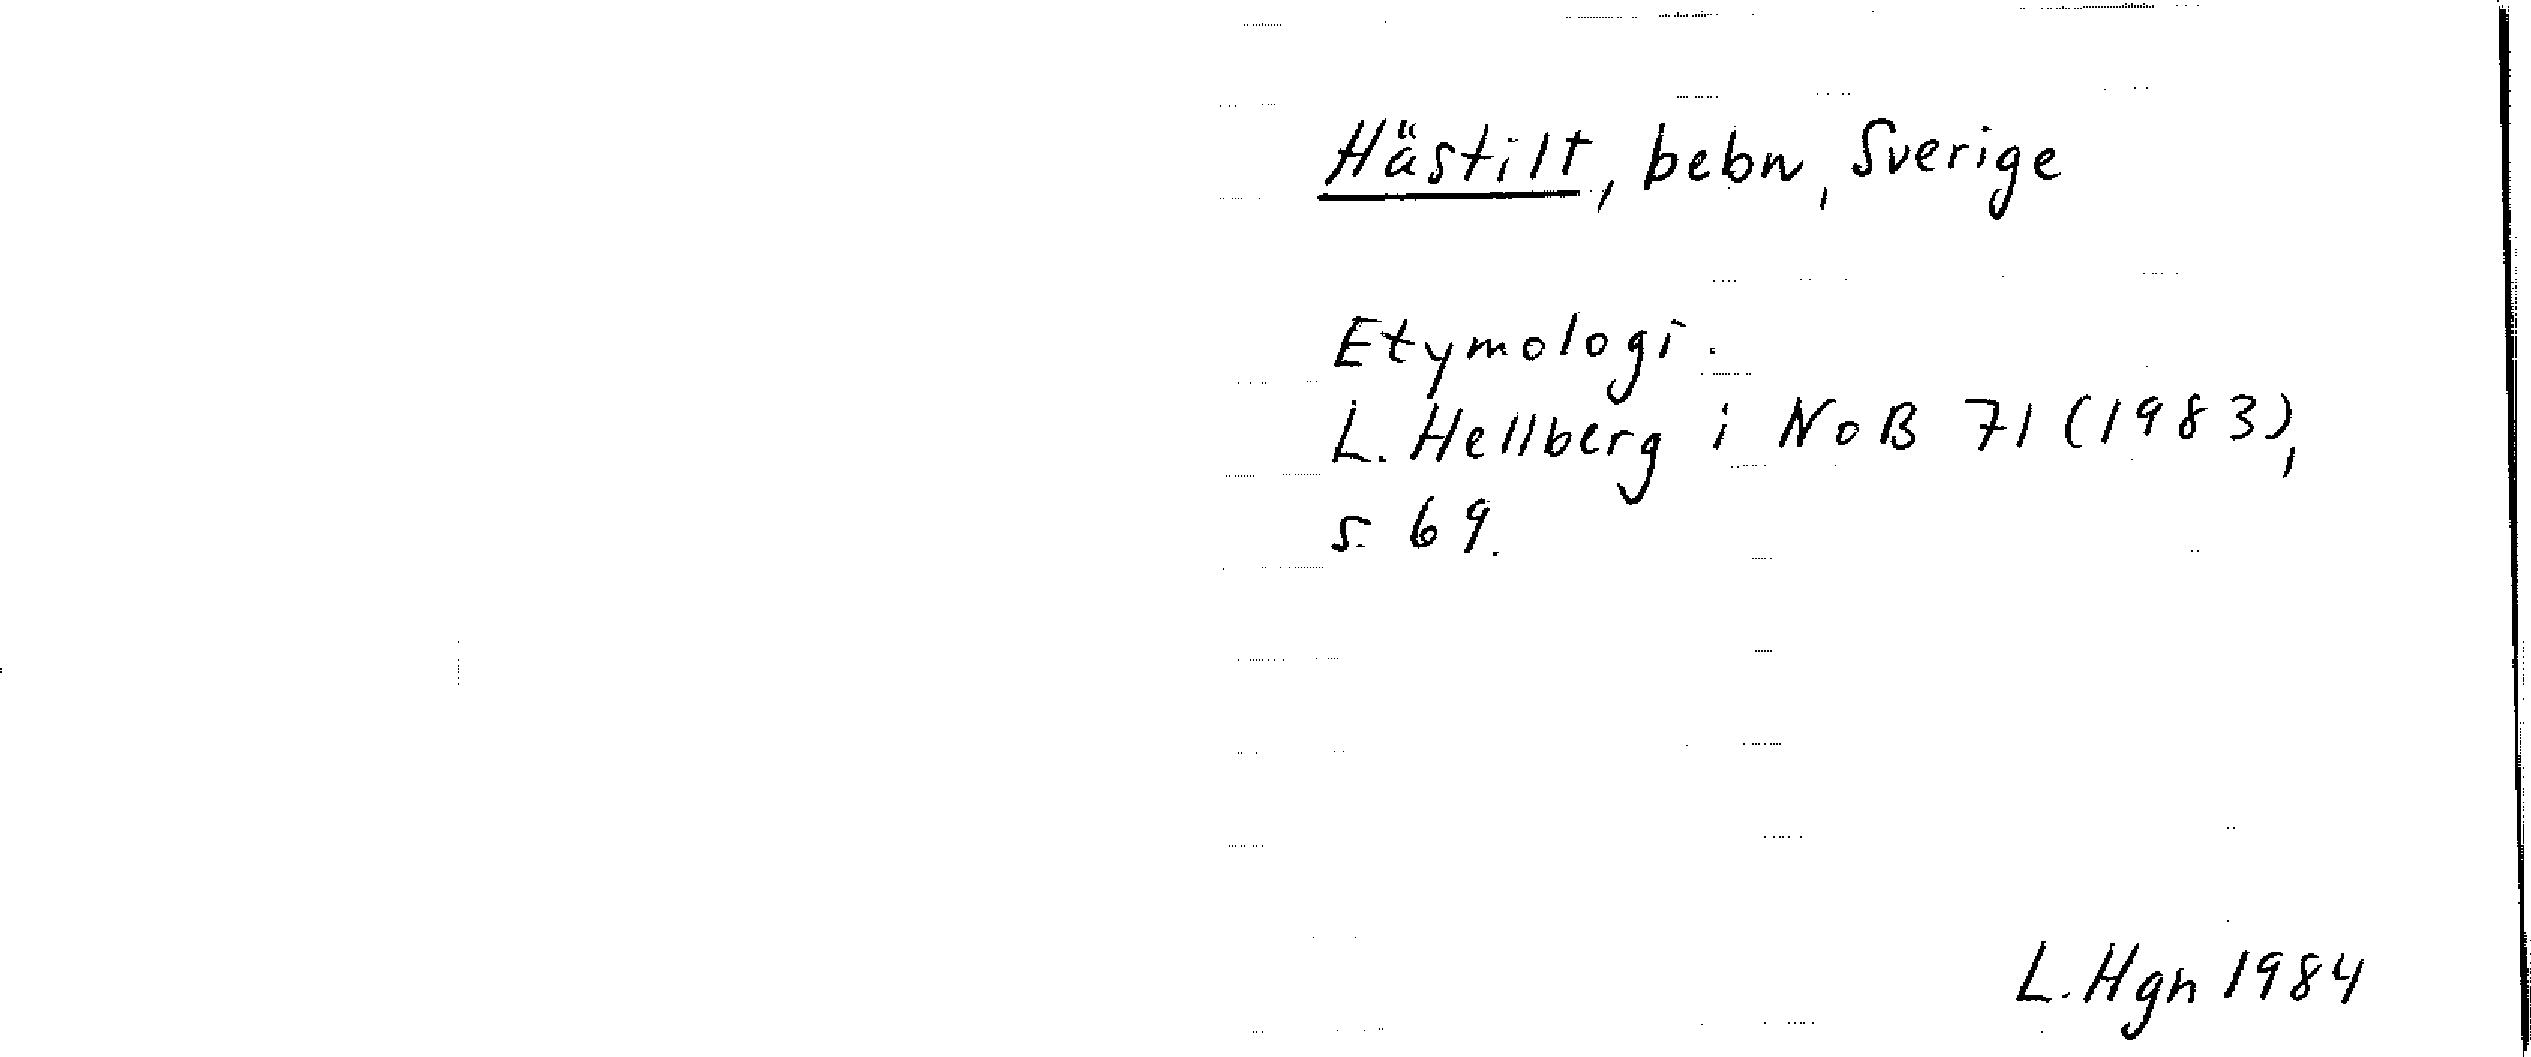 Hästilt, bebn, Sverige
Etymologi.
L. Hellberg i NoB 71 (1983),
s. 69.
L. Hgn 1984